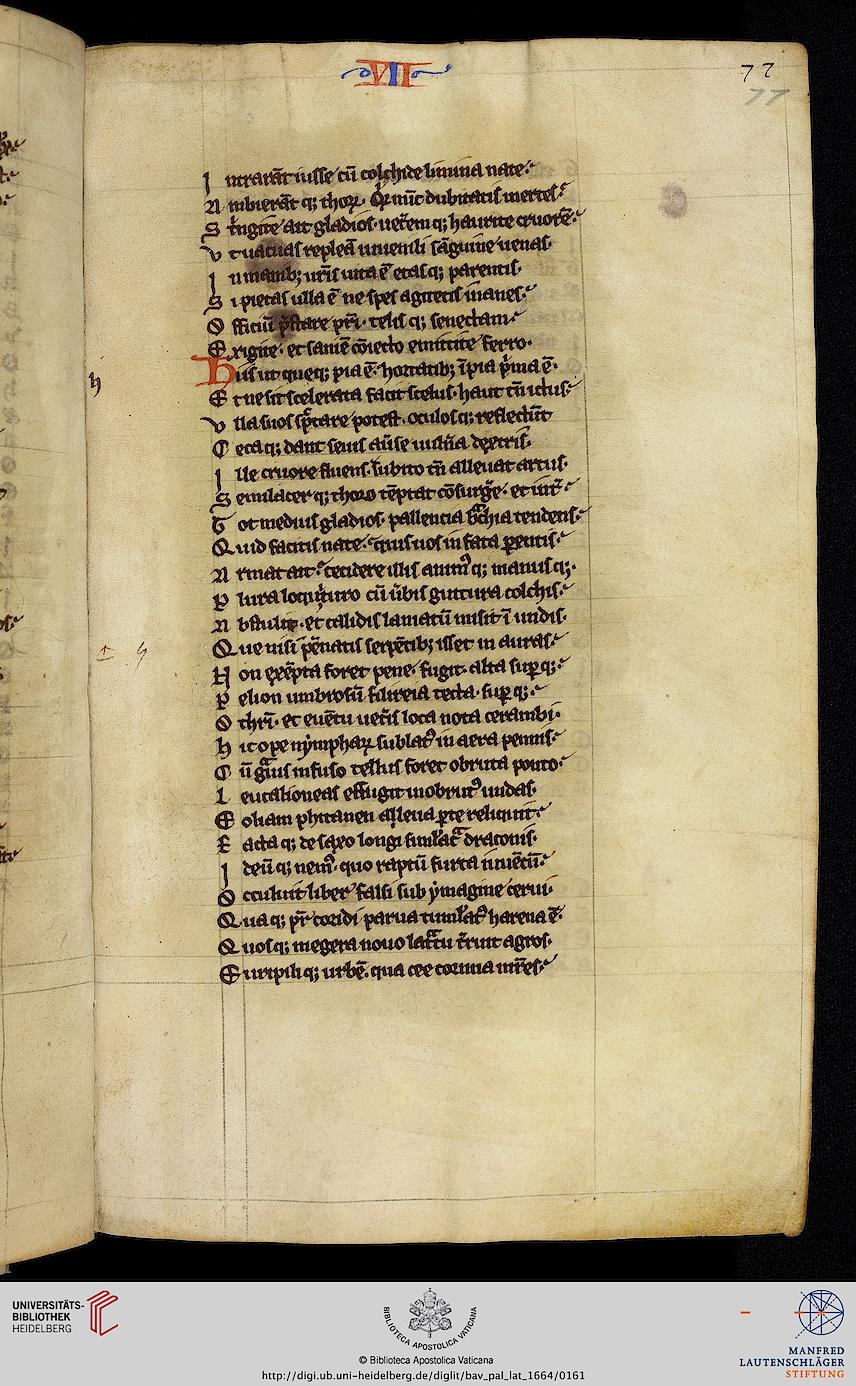 VII
77
77
I ntrarāt iusse cū colchide limina nate
A mbierāt q; thorꝝ. Qͥr nūc dubitatis inertes
S tͥngite ait gladios. uet̄em q; haurite cruorē
v t uacuas repleā iuuenili sāguine uenas.
I n manib; ur̄is uita ē etasq; parentis.
S i pietas ulla ē ne spes agitetis inanes
O fficiū p̄stare pr̄i. telis q; senectam
E xigite. et saniē cōiecto emittite ferro.
h
H iis ut queq; pia ē. hortatib; īpia pͥma ē.
E t ne sit scelerata facit scelus. haut tn̄ ictus
v lla suos sp̄tare potest. oculosq; reflectūt
C ecaq; dant seuis au̓se uuln̓a dext̓ris.
I lle cruore fluens. cubito tn̄ alleuat artus.
S emilacer q; thoro tēptat cōsurg̓e. et int̓
T ot medius gladios. pallencia bͣchia tendens
Q uid facitis nate. quis uos in fata parentis
A rmat ait. cecidere illis animꝰ q; manus q;.
P lura locuturo cū u̓bis guttura colchis
A bstulit. et calidis laniatū misit ī undis.
Q ue nisi pēnatis serpētib; isset in auras
N on exēpta foret pene. fugit. alta suꝑ q;
P elion umbrosū filireia tecta. suꝑ q;
O thrī. et euētu uet̓is loca nota cerambi.
h ic ope nẏmpharꝝ sublatꝰ in aera pennis
C ū gͣuis infuso tellus foret obruta ponto
L eucalioneas effugit inobrutꝰ undas.
E oliam phitanen a leua parte reliquit
F acta q; de saxo longi simlacͣ draconis.
I deū q; nemꝰ. quo raptū furta iuuēcū
O cculuit liber falsi sub ẏmagine cerui.
Q ua q; pr̄ coridi parua tumlatꝰ harena ē.
Q uos q; megera nouo latratu t̓ruit agros.
E uripili q; urbē. qua cee cornua mr̄es
UNIVERSITÄTS-
BIBLIOTHEK
HEIDELBERG
BIBLIOTECA APOSTOLICA VATICANA
© Biblioteca Apostolica Vaticana
http://digi.ub.uni-heidelberg.de/diglit/bav_pal_lat_1664/0161
MANFRED
LAUTENSCHLÄGER
STIFTUNG